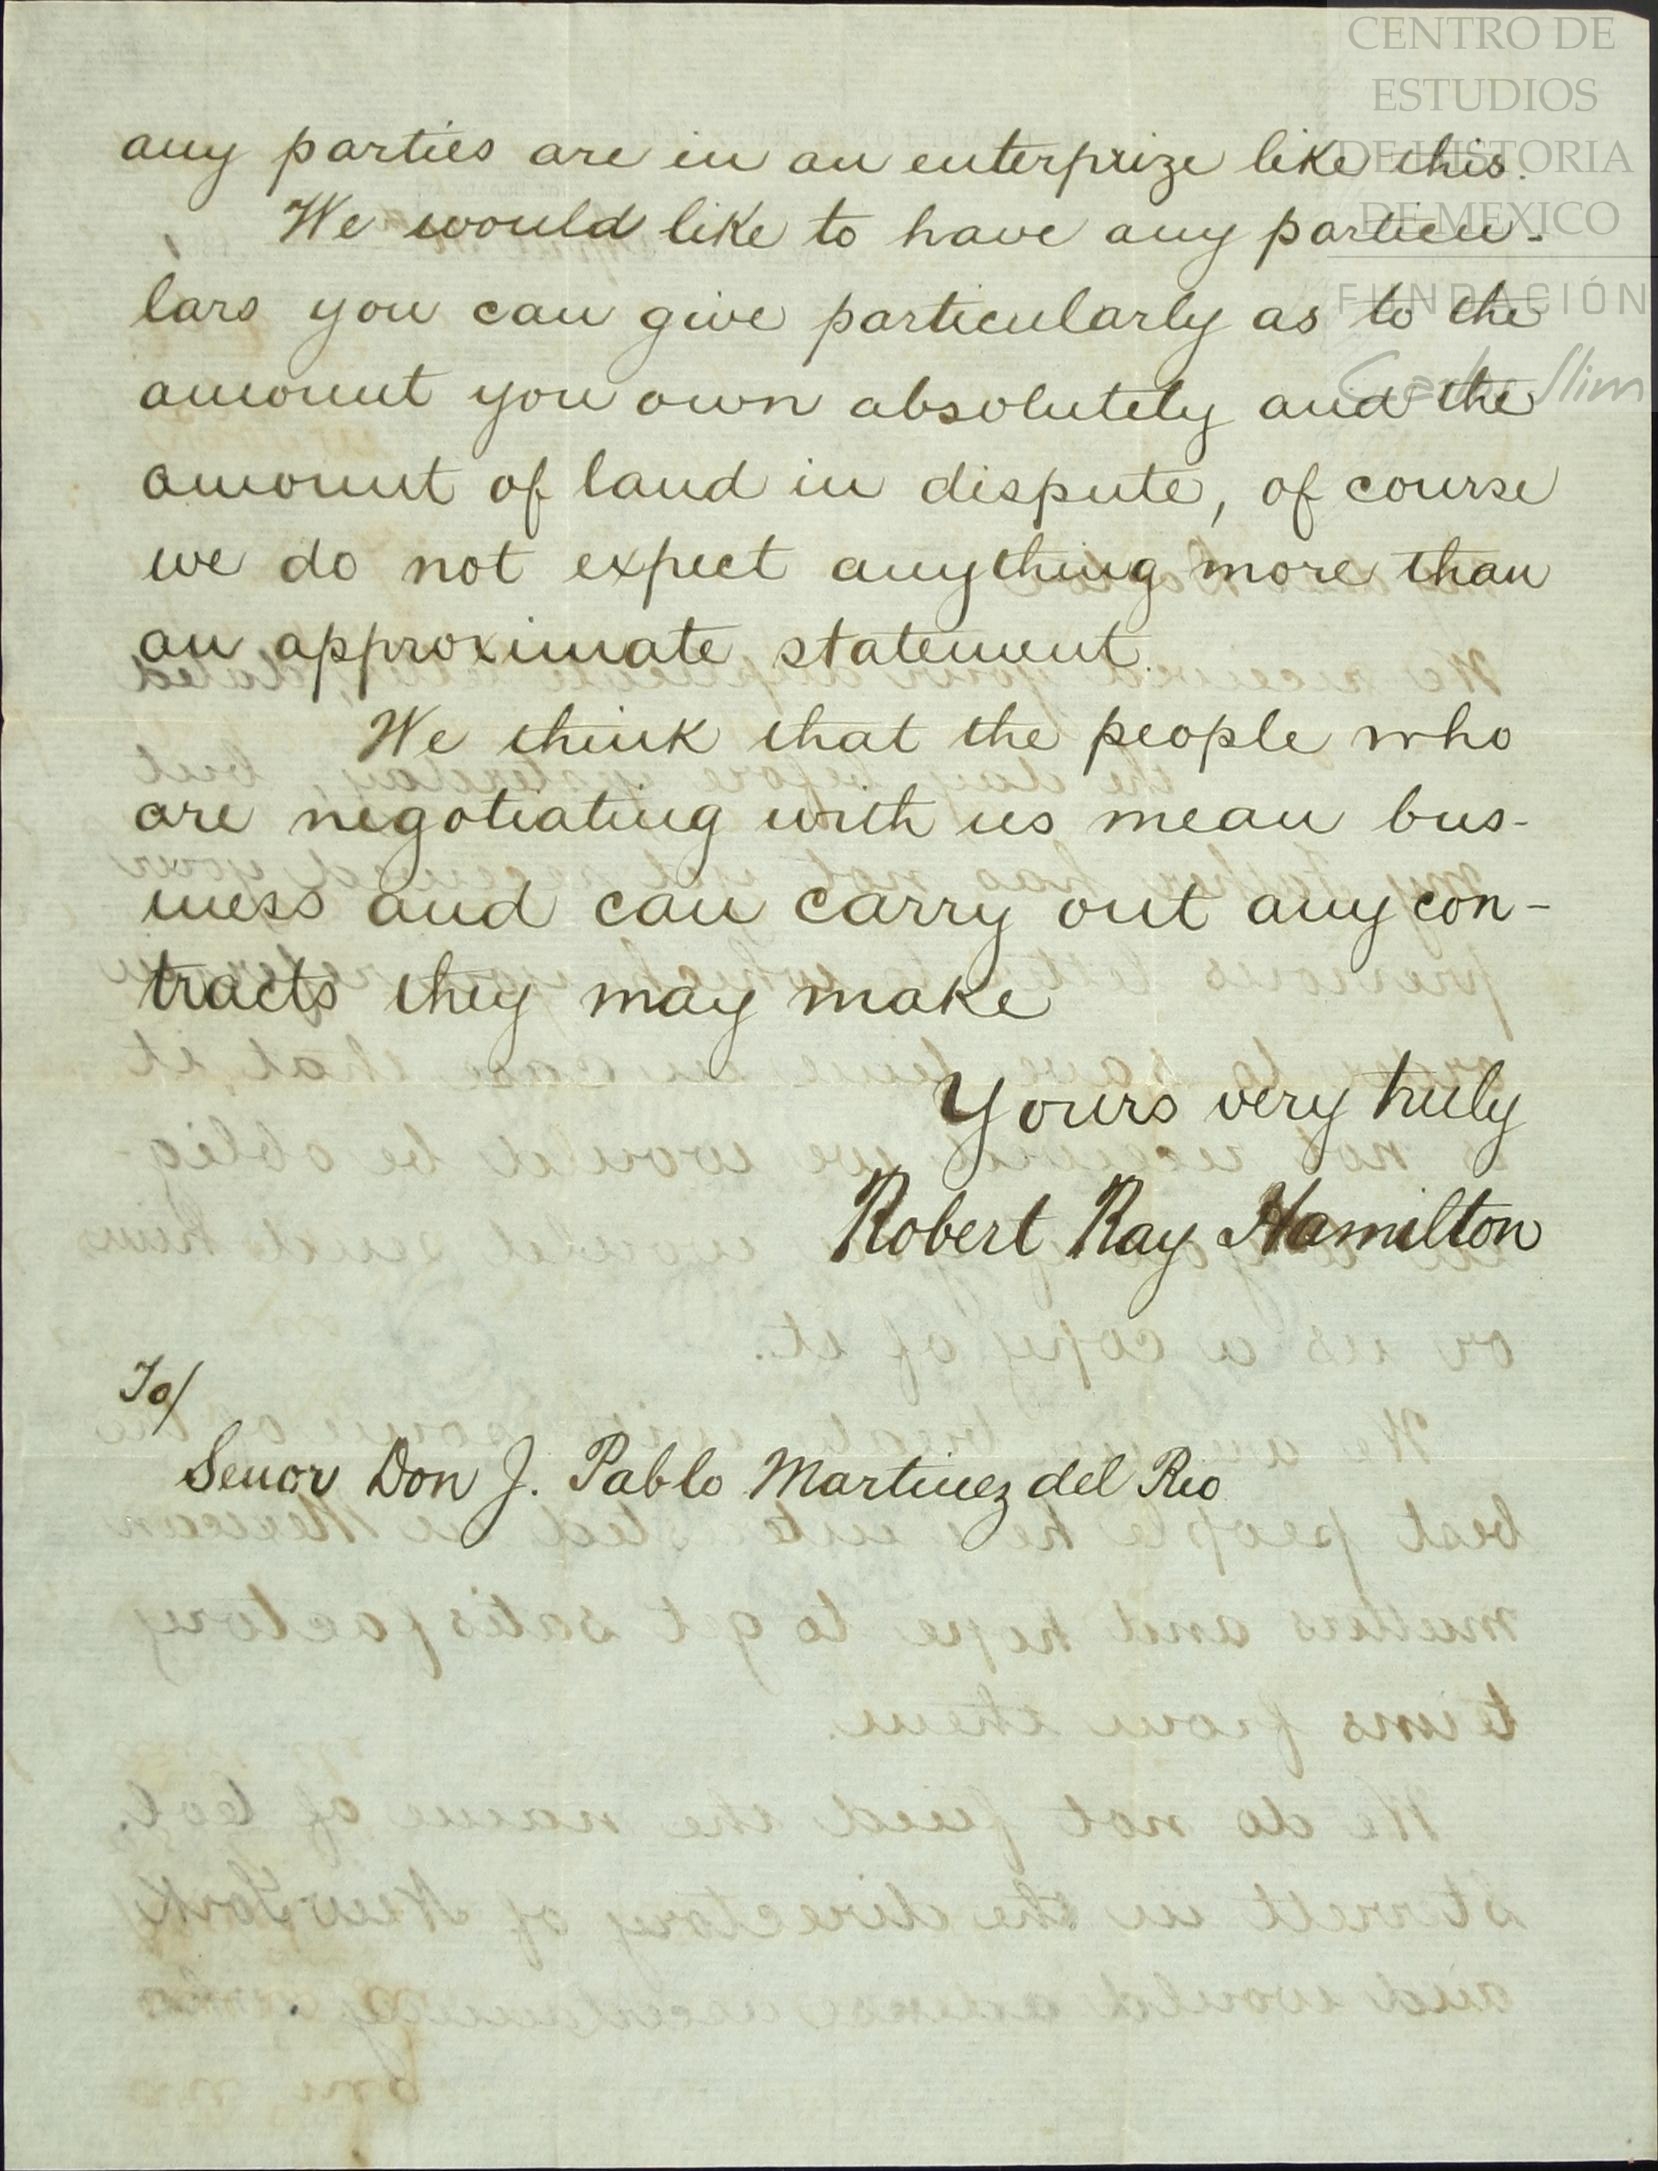 CENTRO DE
ESTUDIOS
DE HISTORIA
DE MEXICO
FUNDACIÓN
Carlos Slim
any parties are in an enterprize like this.
We would like to have any particu-
lars you can give particularly as to the
amount you own absolutely and the
amount of land in dispute, of course
we do not expect anything more than
an approximate statement.
We think that the people who
are negotiating with us mean bus-
iness and can carry out any con-
tracts they may make
Yours very truly
Robert Ray Hamilton
To/
Senor Don J. Pablo Martinez del Rio